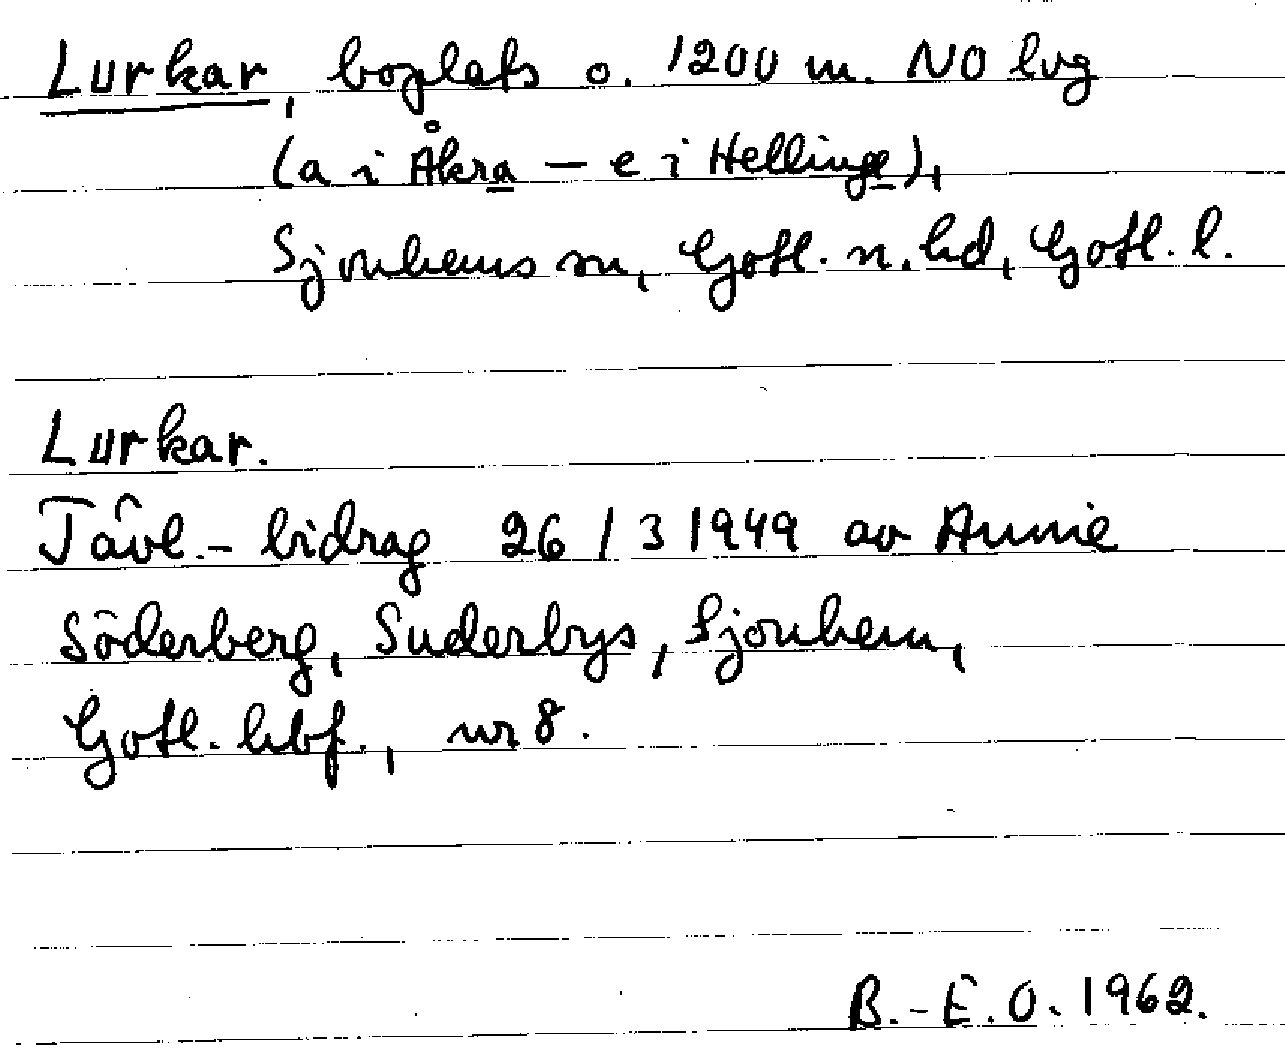 Lurkar, boplats o. 1200 m. NO lvg
(a i Åkra – e i Hellinge),
Sjonhems sn, Gotl. n. hd, Gotl. l.
Lurkar.
Tävl.- bidrag 26/3 1949 av Annie
Söderberg, Suderbys, Sjonhem,
Gotl. hbf., nr 8.
B.-E.O. 1962.